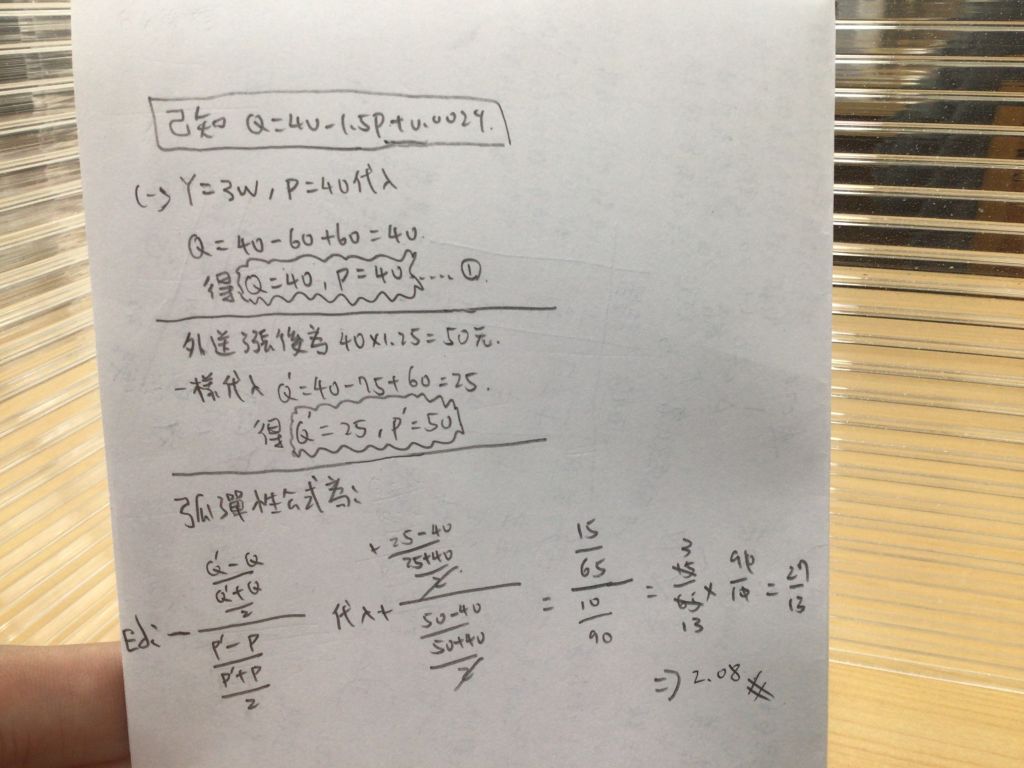 已知 Q=40-1.5P+0.002Y.
(一) Y=3W, P=40代入
Q=40-60+60=40.
得 Q=40, P=40 .... ①
外送漲後為 40×1.25=50元.
一樣代入 Q'=40-75+60=25.
得 Q'=25, P'=50
弧彈性公式為:
Ed: - Q'-Q / Q'+Q / 2 / P'-P / P'+P / 2 代入+ + 25-40 / 25+40 / 2 / 50-40 / 50+40 / 2 = 15 / 65 / 10 / 90 = 3 15 / 65 13 × 90 / 10 = 27 / 13
⇒ 2.08